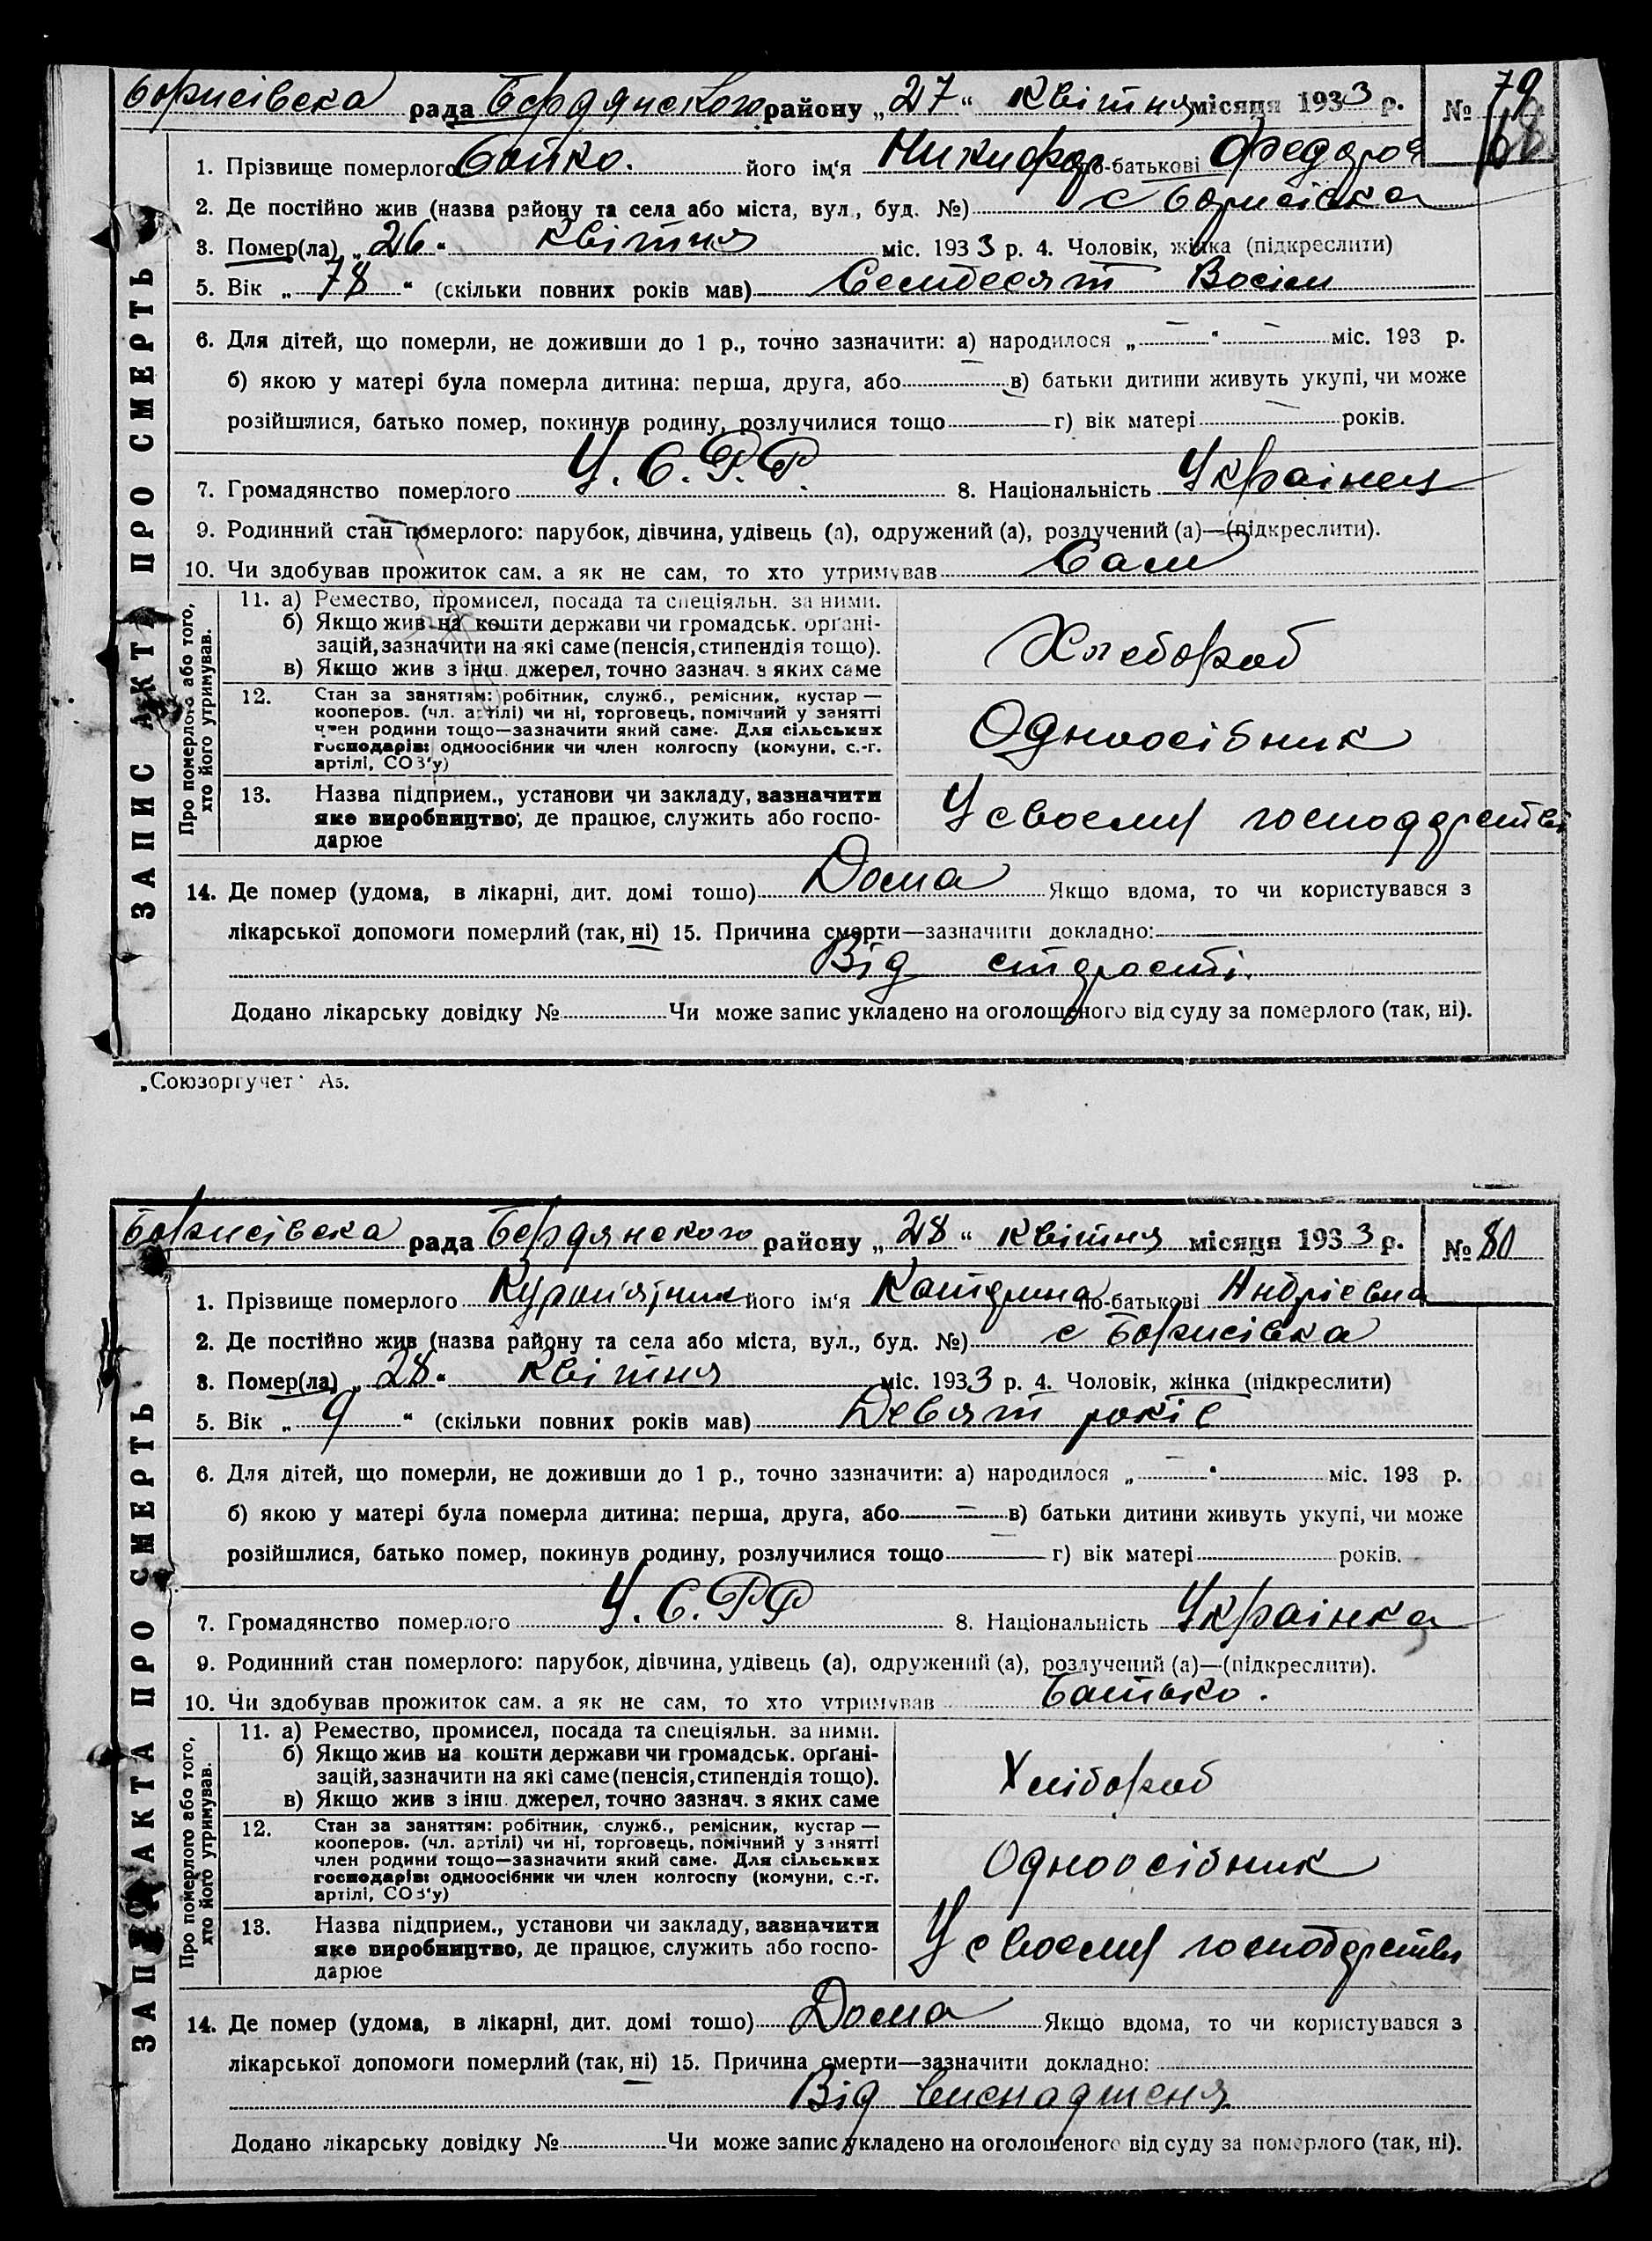 Борисівска рада Бердянского району „27“ Квітня місяця 1933 р. № 79
68
1. Прізвище померлого Бойко. його ім‘я Никифор по-батькові Федоров
2. Де постійно жив (назва району та села або міста, вул., буд. №) с Борисівка
3. Помер(ла) „26“ квітня міс. 1933 р. 4. Чоловік, жінка (підкреслити)
5. Вік „78“ (скільки повних років мав) Семдесят Восім
6. Для дітей, що померли, не доживши до 1 р., точно зазначити: а) народилося „—“ — міс. 193 р.
б) якою у матері була померла дитина: перша, друга, або в) батьки дитини живуть укупі, чи може
розійшлися, батько помер, покинув родину, розлучилися тощо г) вік матері — років.
7. Громадянство померлого У.С.Р.Р. 8. Національність Українец
9. Родинний стан померлого: парубок, дівчина, удівець (а), одружений (а), розлучений (а)—(підкреслити).
10. Чи здобував прожиток сам, а як не сам, то хто утримував Сам
ЗАПИС АКТА ПРО СМЕРТЬ
Про померлого або того, хто його утримував.
11. а) Ремество, промисел, посада та спеціяльн. за ними.
б) Якщо жив на кошти держави чи громадськ. орґані-
зацій, зазначити на які саме (пенсія, стипендія тощо).
в) Якщо жив з інш. джерел, точно зазнач. з яких саме
Хлебороб
12. Стан за заняттям: робітник, служб., ремісник, кустар —
кооперов. (чл. артілі) чи ні, торговець, помічний у занятті
член родини тощо—зазначити який саме. Для сільських
господарів: одноосібник чи член колгоспу (комуни, с.-г.
артілі, СОЗ‘у)
Одноосібник
13. Назва підприєм., установи чи закладу, зазначити
яке виробництво, де працює, служить або госпо-
дарює
У своему господарстві
14. Де помер (удома, в лікарні, дит. домі тощо) Дома Якщо вдома, то чи користувався з
лікарської допомоги померлий (так, ні) 15. Причина смерти—зазначити докладно:
Від старості.
Додано лікарську довідку № Чи може запис укладено на оголошеного від суду за померлого (так, ні).
„Союзоргучет“ А5.
Борисівска рада Бердянского району „28“ квітня місяця 1933 р. № 80
1. Прізвище померлого Куроп‘ятник його ім‘я Катерина по-батькові Андрієвна
2. Де постійно жив (назва району та села або міста, вул., буд. №) с Борисівка
3. Помер(ла) „28“ квітня міс. 1933 р. 4. Чоловік, жінка (підкреслити)
5. Вік „9“ (скільки повних років мав) Девят років
6. Для дітей, що померли, не доживши до 1 р., точно зазначити: а) народилося „—“ міс. 193 р.
б) якою у матері була померла дитина: перша, друга, або — в) батьки дитини живуть укупі, чи може
розійшлися, батько помер, покинув родину, розлучилися тощо г) вік матері років.
7. Громадянство померлого У.С.Р.Р 8. Національність Українка
9. Родинний стан померлого: парубок, дівчина, удівець (а), одружений (а), розлучений (а)—(підкреслити).
10. Чи здобував прожиток сам, а як не сам, то хто утримував Батько.
ЗАПИС АКТА ПРО СМЕРТЬ
Про померлого або того, хто його утримував.
11. а) Ремество, промисел, посада та спеціяльн. за ними.
б) Якщо жив на кошти держави чи громадськ. орґані-
зацій, зазначити на які саме (пенсія, стипендія тощо).
в) Якщо жив з інш. джерел, точно зазнач. з яких саме
Хлібороб
12. Стан за заняттям: робітник, служб., ремісник, кустар —
кооперов. (чл. артілі) чи ні, торговець, помічний у занятті
член родини тощо—зазначити який саме. Для сільських
господарів: одноосібник чи член колгоспу (комуни, с.-г.
артілі, СОЗ‘у)
Одноосібник
13. Назва підприєм., установи чи закладу, зазначити
яке виробництво, де працює, служить або госпо-
дарює
У своему господарстві
14. Де помер (удома, в лікарні, дит. домі тощо) Дома Якщо вдома, то чи користувався з
лікарської допомоги померлий (так, ні) 15. Причина смерти—зазначити докладно:
Від виснадженя
Додано лікарську довідку № Чи може запис укладено на оголошеного від суду за померлого (так, ні).